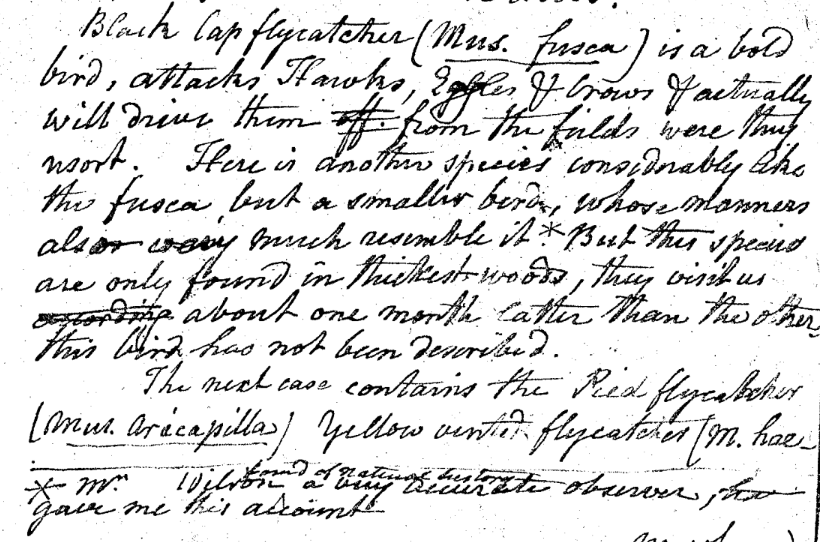 Black Cap flycatcher (Mus. fusca) is a bold
bird, attacks Hawks, Eagles & Crows & actually
will drive them off. from the fields were they
resort. Here is another species considerably like
the fusca but a smaller bird, whose manners
also very much resemble it.* But this species
are only found in thickest woods, they visit us
according about one month latter than the other,
this bird has not been described.
The next case contains the Pied flycatcher
(Mus. aricapilla) Yellow vented flycatcher (M. hae-
found of natural history
* Mr. Wilson a very accurate observer,
gave me this account